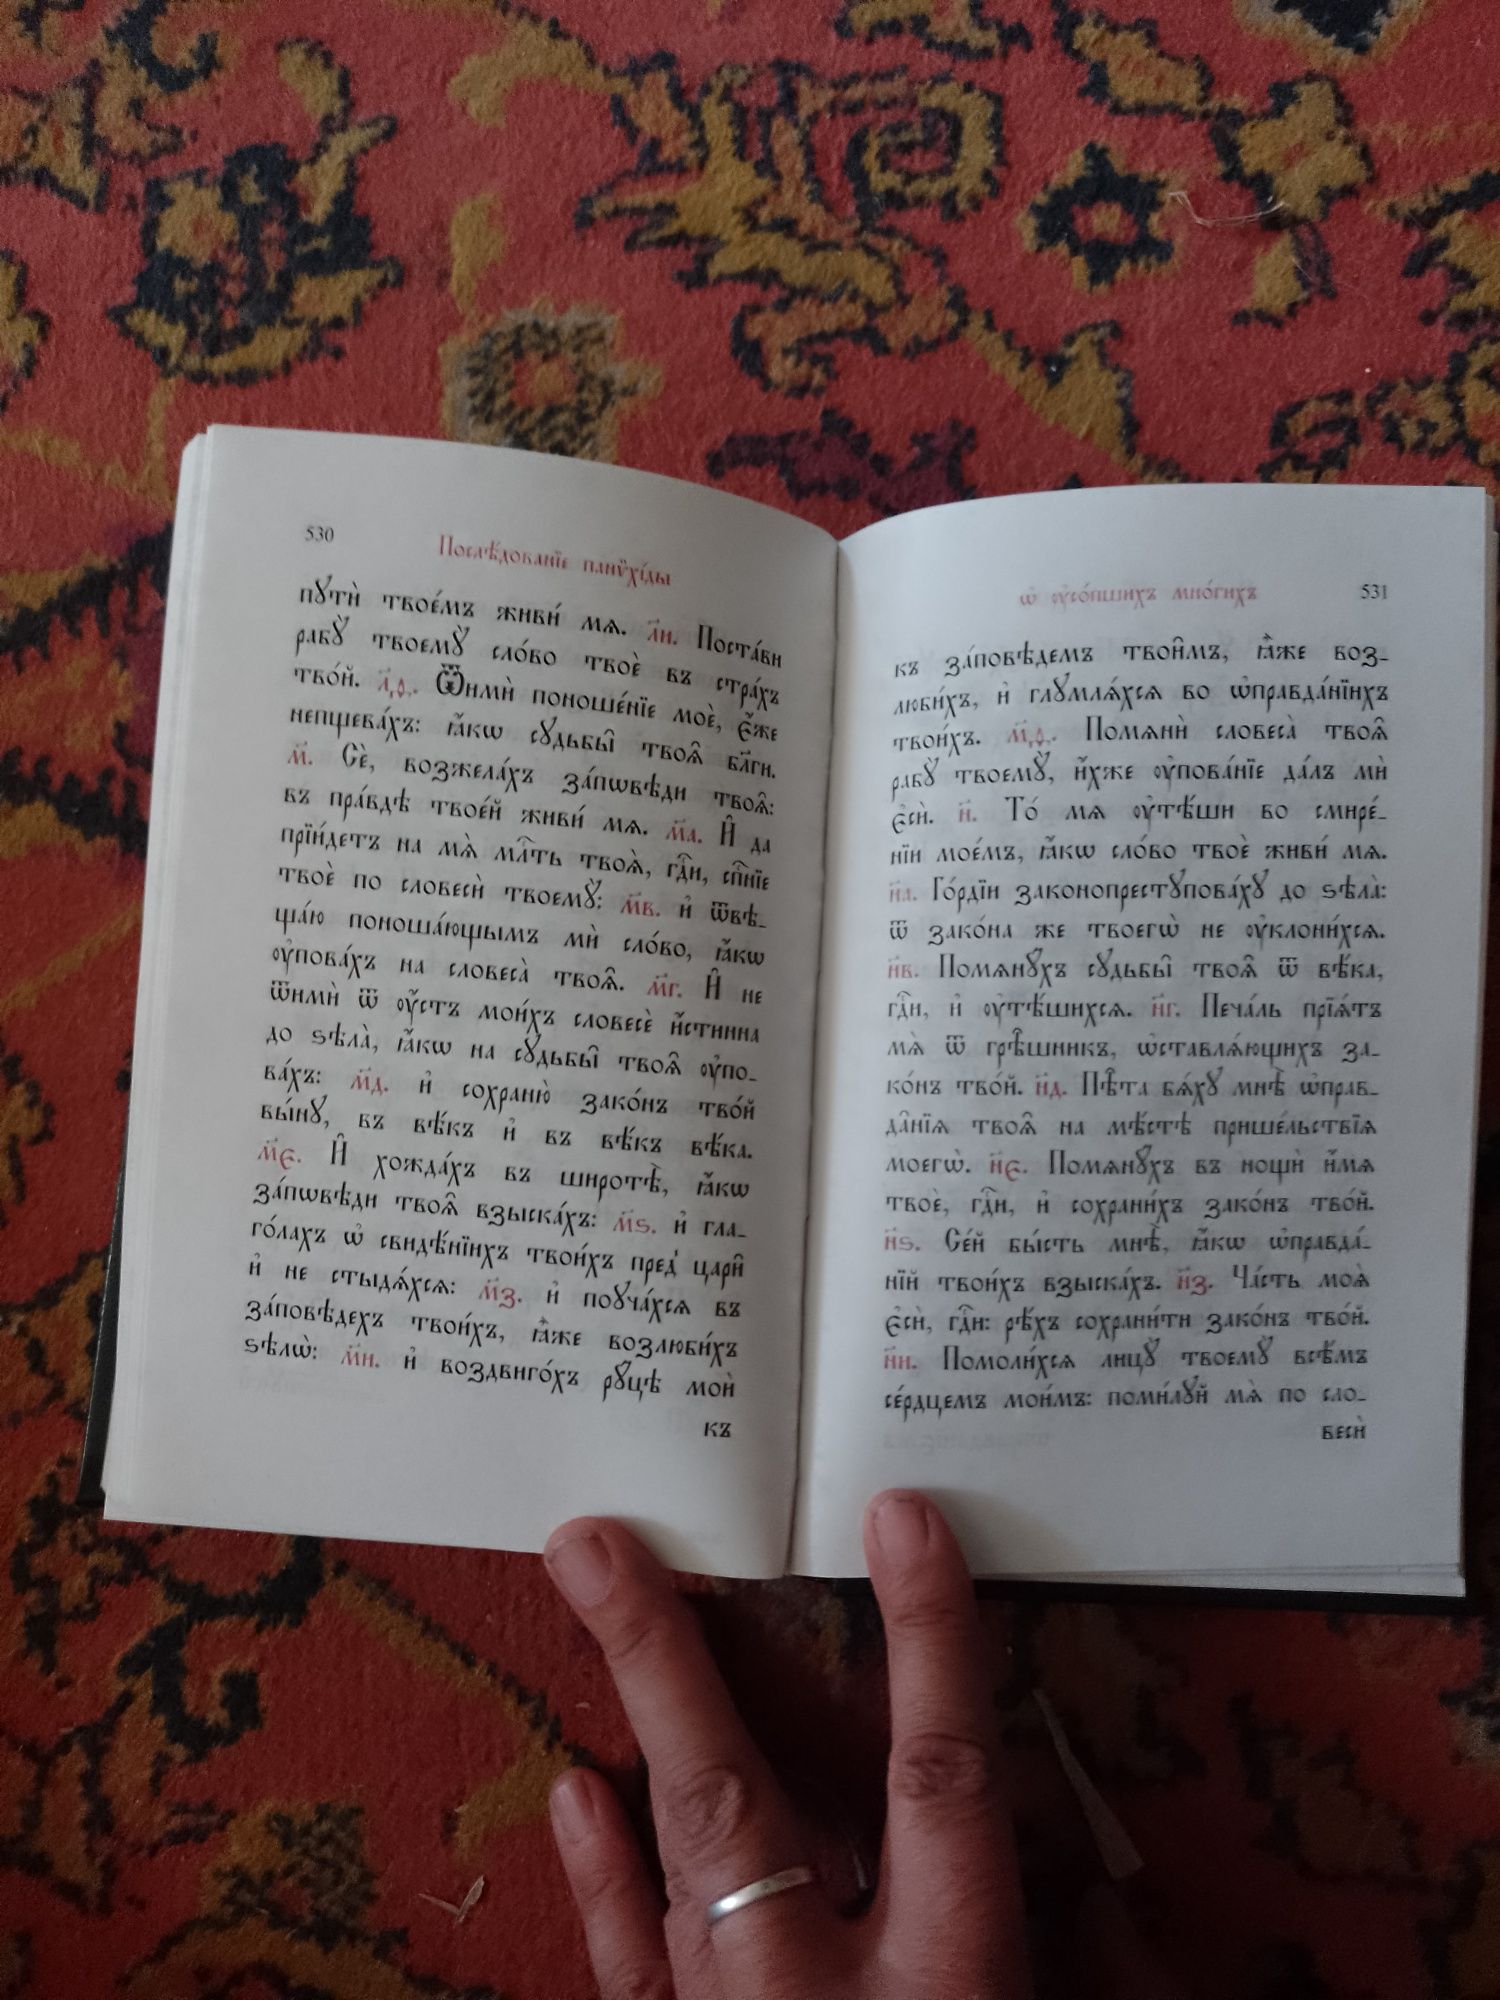 530
Послѣ́дованїе панѷхі́ды
пꙋтѝ твое́мъ живи́ мѧ. л҃и. Поста́ви
рабꙋ̀ твоемꙋ̀ сло́во твоѐ въ стра́хъ
тво́й. л҃ѳ. Ѿимѝ поноше́нїе моѐ, є҆́же
непщева́хъ: ꙗ҆́кѡ сꙋдьбы̑ твоѧ̑ бл҃ги.
м҃. Сѐ, возжела́хъ за́пѡвѣди твоѧ̑:
въ пра́вдѣ твое́й живи́ мѧ. м҃а. И҆ да
прїи́детъ на мѧ̀ млⷭ҇ть твоѧ̀, гдⷭ҇и, спⷭ҇нїе
твоѐ по словесѝ твоемꙋ̀: м҃в. и҆ ѿвѣ-
ща́ю поноша́ющымъ мѝ сло́во, ꙗ҆́кѡ
ᲂу҆пова́хъ на словеса̀ твоѧ̑. м҃г. И҆ не
ѿимѝ ѿ ᲂу҆́стъ мои́хъ словесѐ и҆́стинна
до ѕѣла̀, ꙗ҆́кѡ на сꙋдьбы̑ твоѧ̑ ᲂу҆по-
ва́хъ: м҃д. и҆ сохраню̀ зако́нъ тво́й
вы́нꙋ, въ вѣ́къ и҆ въ вѣ́къ вѣ́ка.
м҃є. И҆ хожда́хъ въ широтѣ̀, ꙗ҆́кѡ
за́пѡвѣди твоѧ̑ взыска́хъ: м҃ѕ. и҆ гла-
го́лахъ ѡ҆ свидѣ́нїихъ твои́хъ пред̾ цари̑
и҆ не стыдѧ́хсѧ: м҃з. и҆ поꙋча́хсѧ въ
за́повѣдехъ твои́хъ, ꙗ҆̀же возлюби́хъ
ѕѣлѡ̀: м҃и. и҆ воздвиго́хъ рꙋ́цѣ моѝ
къ
ѡ҆ ᲂу҆со́пшихъ мно́гихъ
531
къ за́повѣдемъ твои̑мъ, ꙗ҆̀же воз-
люби́хъ, и҆ глꙋмлѧ́хсѧ во ѡ҆правда́нїихъ
твои́хъ. м҃ѳ. Помѧнѝ словеса̀ твоѧ̑
рабꙋ̀ твоемꙋ̀, и҆́хже ᲂу҆пова́нїе да́лъ мѝ
є҆сѝ. н҃. То́ мѧ ᲂу҆тѣ́ши во смире́-
нїи мое́мъ, ꙗ҆́кѡ сло́во твоѐ живи́ мѧ.
н҃а. Го́рдїи законопрестꙋпова́хꙋ до ѕѣла̀:
ѿ зако́на же твоегѡ̀ не ᲂу҆клони́хсѧ.
н҃в. Помѧнꙋ́хъ сꙋдьбы̑ твоѧ̑ ѿ вѣ́ка,
гдⷭ҇и, и҆ ᲂу҆тѣ́шихсѧ. н҃г. Печа́ль прїѧ́тъ
мѧ̀ ѿ грѣ̑шникъ, ѡ҆ставлѧ́ющихъ за-
ко́нъ тво́й. н҃д. Пѣ̑та бѧ́хꙋ мнѣ̀ ѡ҆прав-
да̑нїѧ твоѧ̑ на мѣ́стѣ прише́льствїѧ
моегѡ̀. н҃є. Помѧнꙋ́хъ въ нощѝ и҆́мѧ
твоѐ, гдⷭ҇и, и҆ сохрани́хъ зако́нъ тво́й.
н҃ѕ. Се́й бы́сть мнѣ̀, ꙗ҆́кѡ ѡ҆правда́-
нїй твои́хъ взыска́хъ. н҃з. Ча́сть моѧ̀
є҆сѝ, гдⷭ҇и: рѣ́хъ сохрани́ти зако́нъ тво́й.
н҃и. Помоли́хсѧ лицꙋ̀ твоемꙋ̀ всѣ́мъ
се́рдцемъ мои́мъ: поми́лꙋй мѧ̀ по сло-
весѝ